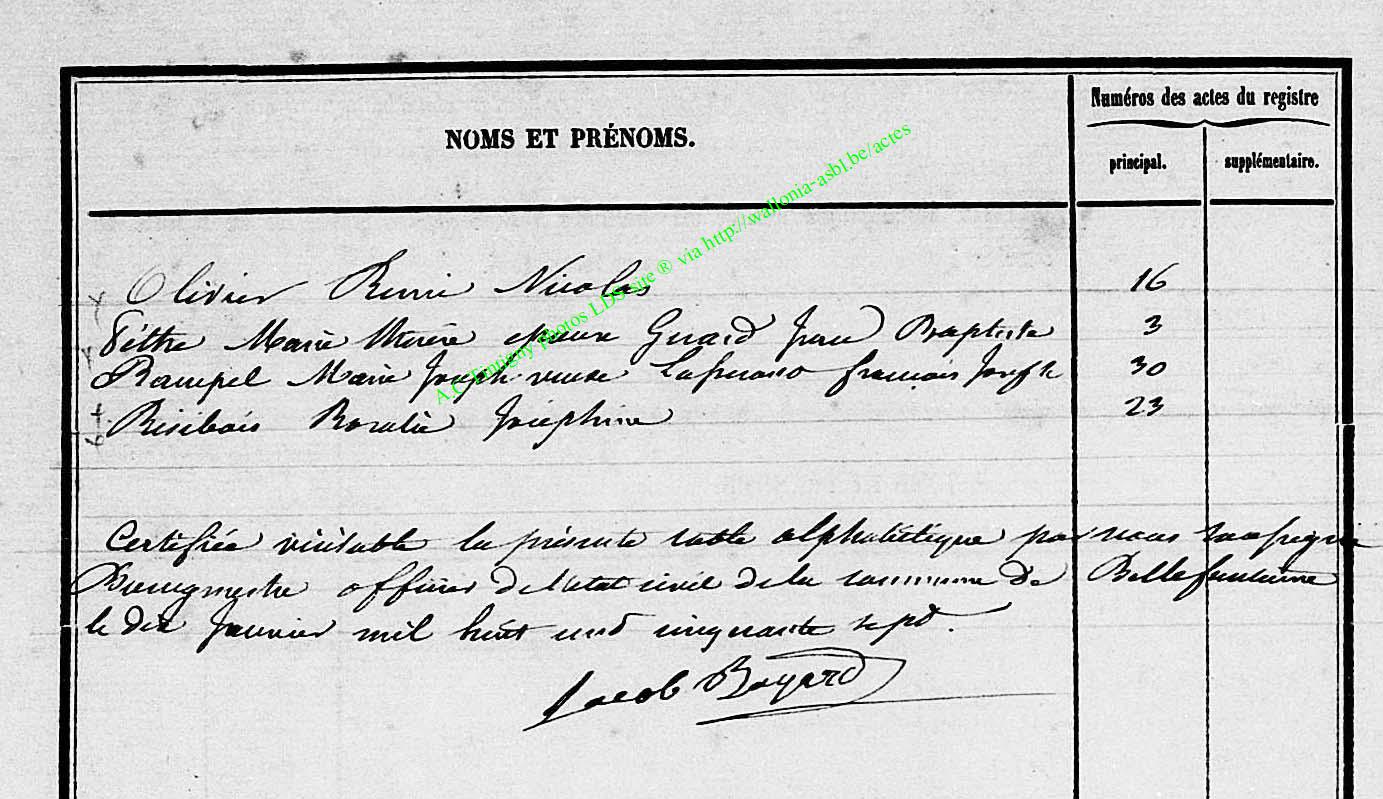 Numéros des actes du registre
NOMS ET PRÉNOMS.
principal. supplémentaire.
A.C. Tintigny photos LDS site ® via http://wallonia-asbl.be/actes
Olivier Nicolas 16
Marie épouse Jean Baptiste 3
Marie Joseph veuve françois Joseph 30
Rosalie Joséphine 23
Certifiée véritable la présente table alphabétique par nous soussigné
Bourgmestre officier de l'état civil de la commune de Bellefontaine
le dix Janvier mil huit cent cinquante sept.
Jacob Boyard